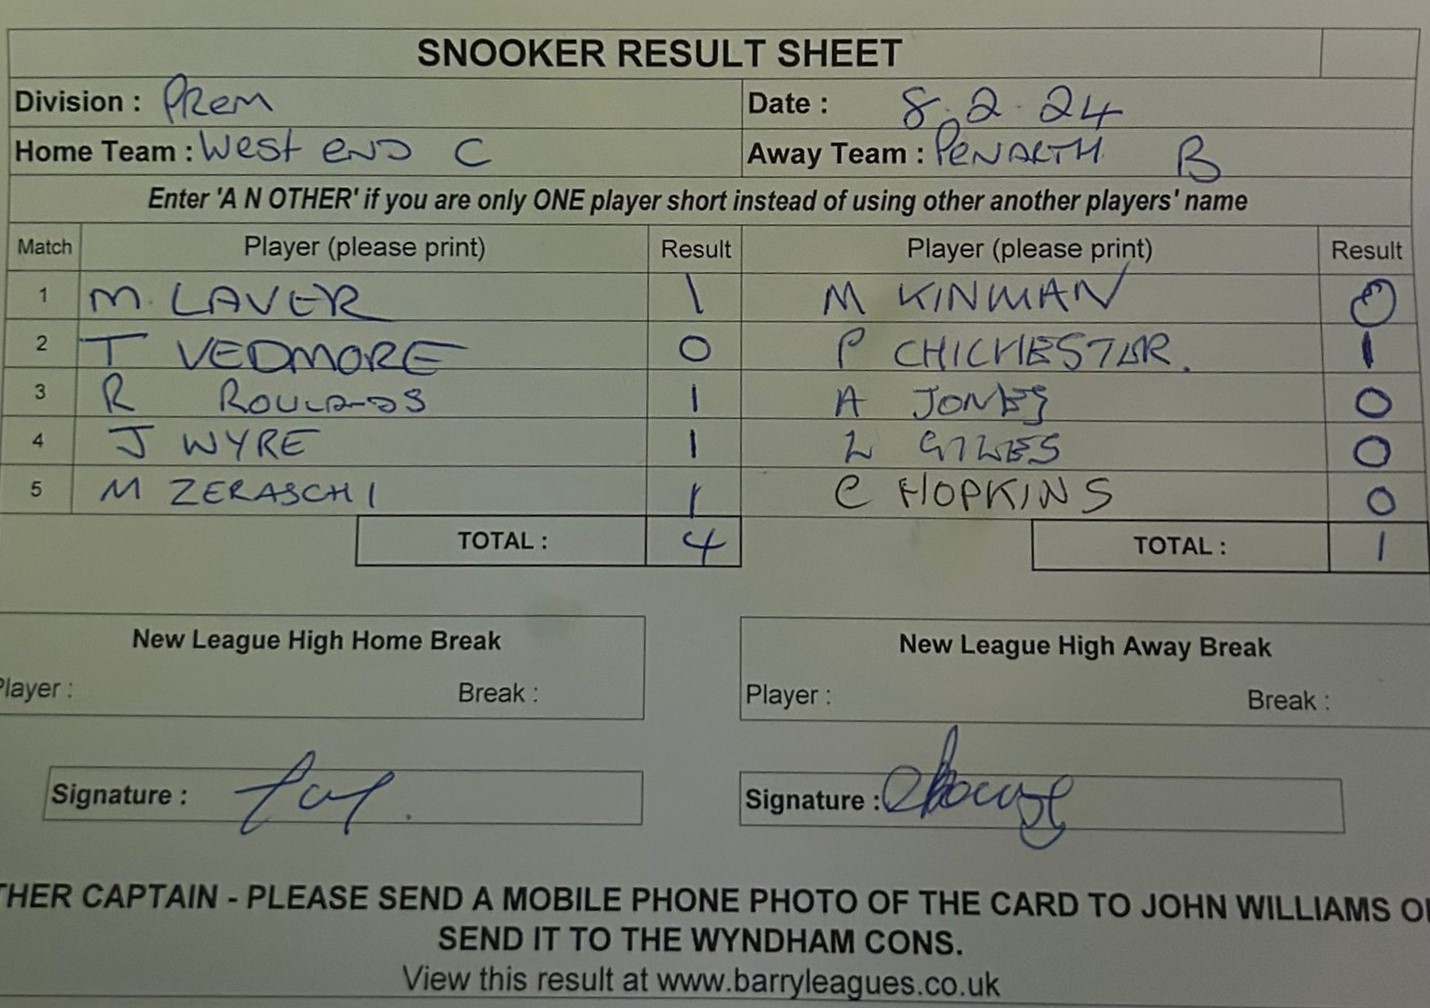 SNOOKER RESULT SHEET
Division : Prem Date : 8.2.24
Home Team : West END C Away Team : PENARTH B
Enter 'A N OTHER' if you are only ONE player short instead of using other another players' name
Match Player (please print) Result Player (please print) Result
1 M. LAVER 1 M KINMAN 0
2 T VEDMORE 0 P CHICHESTAR. 1
3 R ROULANDS 1 A JONES 0
4 J WYRE 1 L GILES 0
5 M ZERASCHI 1 C HOPKINS 0
TOTAL : 4 TOTAL : 1
New League High Home Break New League High Away Break
Player : Break : Player : Break :
Signature : Signature :
THER CAPTAIN - PLEASE SEND A MOBILE PHONE PHOTO OF THE CARD TO JOHN WILLIAMS
SEND IT TO THE WYNDHAM CONS.
View this result at www.barryleagues.co.uk